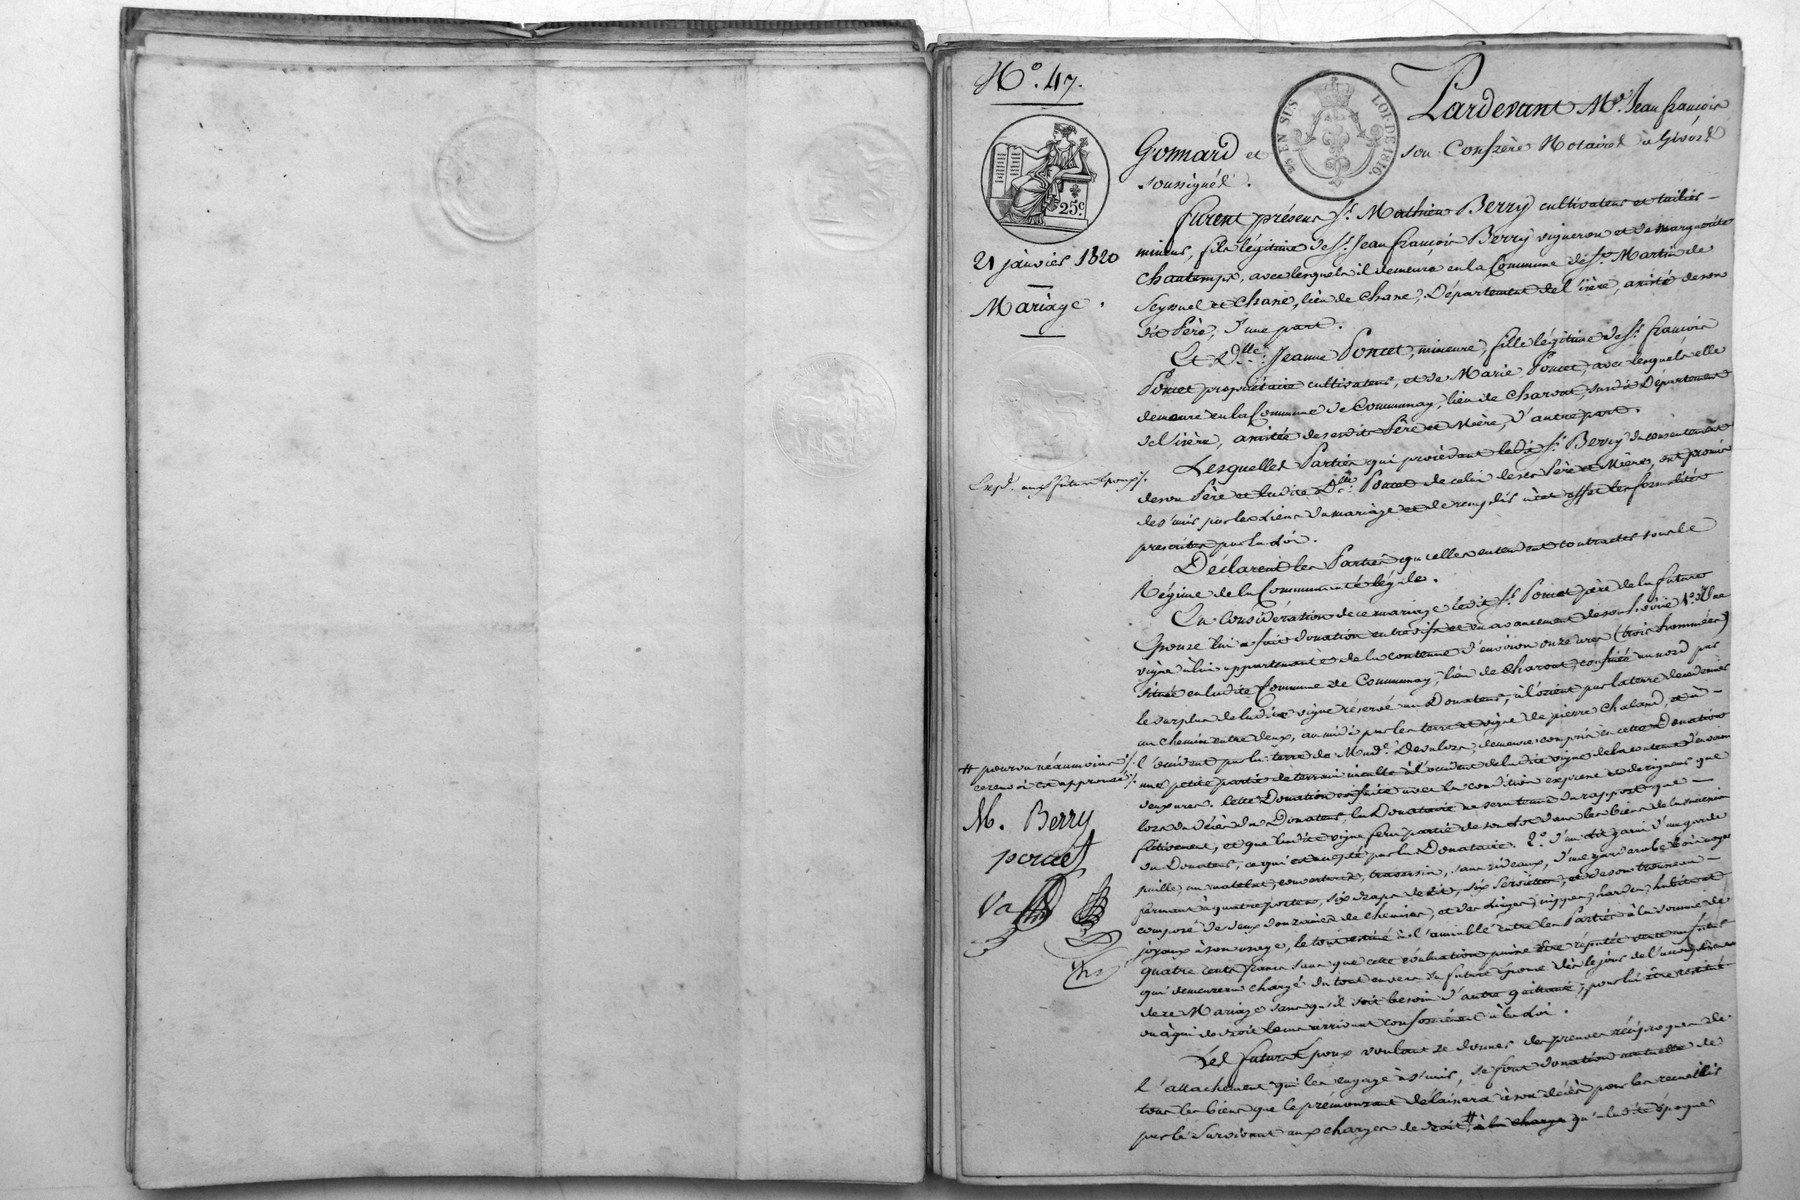 N.° 47.
25 EN SUS
LOI DE 1816.
25.c
21 janvier 1820
Mariage.
Expd. aux futurs Epoux /.
# pourvu néanmoins /.
ce renvoi est approuvé /.
M. Berry
poncet
Pardevant Me. Jean françois
Gonnard et son Confrère Notaires à Givors
soussignés.
furent présens Sr. Mathieu Berry cultivateur et tailier
mineur, fils légitime de Sr. Jean françois Berry vigneron et de marguerite
Chautemps, avec lesquels il demeure en la Commune de St. Martin de
Seyssuel et Chane, lieu de Chane, Département de l'isère, assisté de son
dit Père, d'une part.
Et Dlle. Jeanne Poncet, mineure, fille légitime de Sr. françois
Poncet propriétaire cultivateur, et de Marie Poncet, avec lesquels elle
demeure en la Commune de Communay, lieu de Charout, susdit Département
de l'isère, assistée de sesdits Père et Mère, d'autre part.
Lesquelles Parties qui procèdent ledit Sr. Berry du consentement
de son Père et ladite Dlle. Poncet de celui de ses Père et Mère, ont promis
de s'unir par les Liens du mariage et de remplir à cet effet les formalités
prescrites par la Loi.
Déclarent les Parties qu'elles entendent contracter sous le
Régime de la Communauté légale.
En Considération de ce mariage ledit Sr. Poncet père de la future
Epouse lui a fait donation entrevifs et en avancement de son hoirie 1.° d'Une
vigne à lui appartenante de la contenue d'environ onze ares (trois hommées)
située en ladite Commune de Communay, lieu de Charout, confinée au nord par
le surplus de ladite vigne réservé au Donateur, à l'orient par la terre de
un chemin entre deux, au midi par les terre et vigne de pierre Chaland, et à
l'occident par la terre de Made. Desuloza, demeure compris en cette Donation
une petite partie de terrain inculte à l'occident de ladite vigne de la contenue d'environ
deux ares. Cette Donation est faite avec la condition expresse et de rigueur que
lors du décès du Donateur, la Donataire ne sera tenue du rapport que
fictivement, et que ladite vigne fera partie de son lot dans les biens de la succession
du Donateur, ce qui est accepté par la Donataire. 2.° d'un lit garni d'une garde
paille, un matelat, couverture, traversin, sans rideaux, d'une garderobe bois noyer
fermant à quatre portes, six draps de lit, six serviettes, et de son trousseau
composé de deux douzaines de chemises, et des Linges, nippes, hardes, habits et
joyaux à son usage, le tout estimé à l'amiable entre les Parties à la somme de
quatre cents francs sans que cette évaluation puisse être réputée vente au futur
qui demeurera chargé du tout envers la future épouse dès le jour de l'accomplissement
dece Mariage sans qu'il soit besoin d'autre quittance, pour lui être restitué
ou à qui de droit le cas arrivant conformément à la Loi.
Les futurs Epoux voulant se donner des preuves réciproques de
l'attachement qui les engage à s'unir, se font donation mutuelle de
tous les biens que le prémourant délaissera à son décès pour les recueillir
par le Survivant aux charges de droit # à la charge qu'à ladite époque